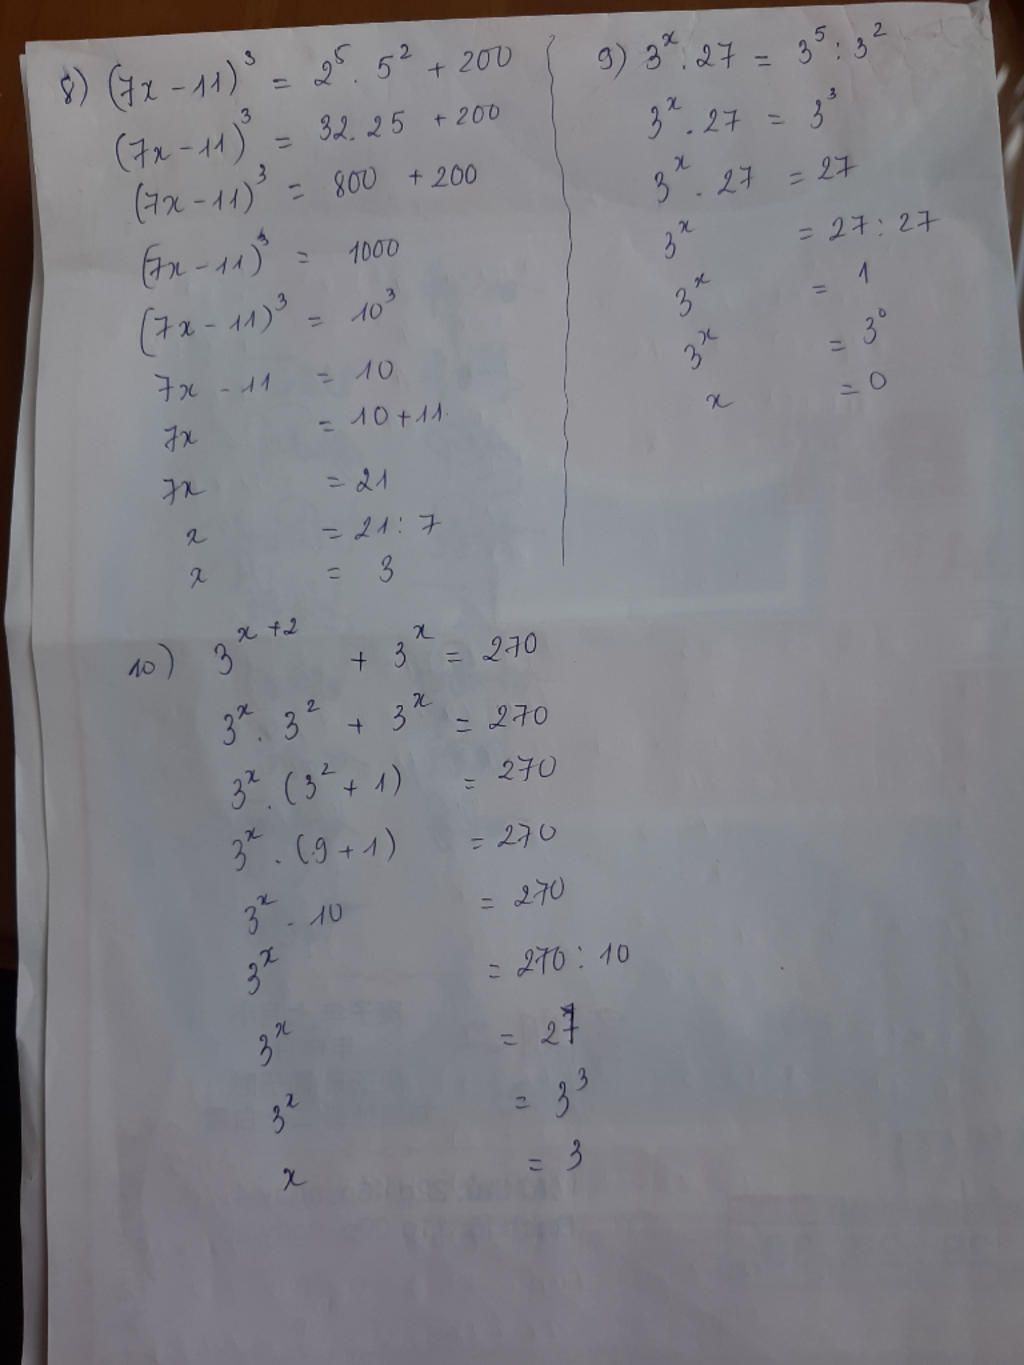 8) (7x - 11)³ = 2⁵ . 5² + 200
(7x - 11)³ = 32 . 25 + 200
(7x - 11)³ = 800 + 200
(7x - 11)³ = 1000
(7x - 11)³ = 10³
7x - 11 = 10
7x = 10 + 11
7x = 21
x = 21 : 7
x = 3
9) 3ˣ . 27 = 3⁵ : 3²
3ˣ . 27 = 3³
3ˣ . 27 = 27
3ˣ = 27 : 27
3ˣ = 1
3ˣ = 3⁰
x = 0
10) 3ˣ⁺² + 3ˣ = 270
3ˣ . 3² + 3ˣ = 270
3ˣ . (3² + 1) = 270
3ˣ . (9 + 1) = 270
3ˣ . 10 = 270
3ˣ = 270 : 10
3ˣ = 27
3ˣ = 3³
x = 3